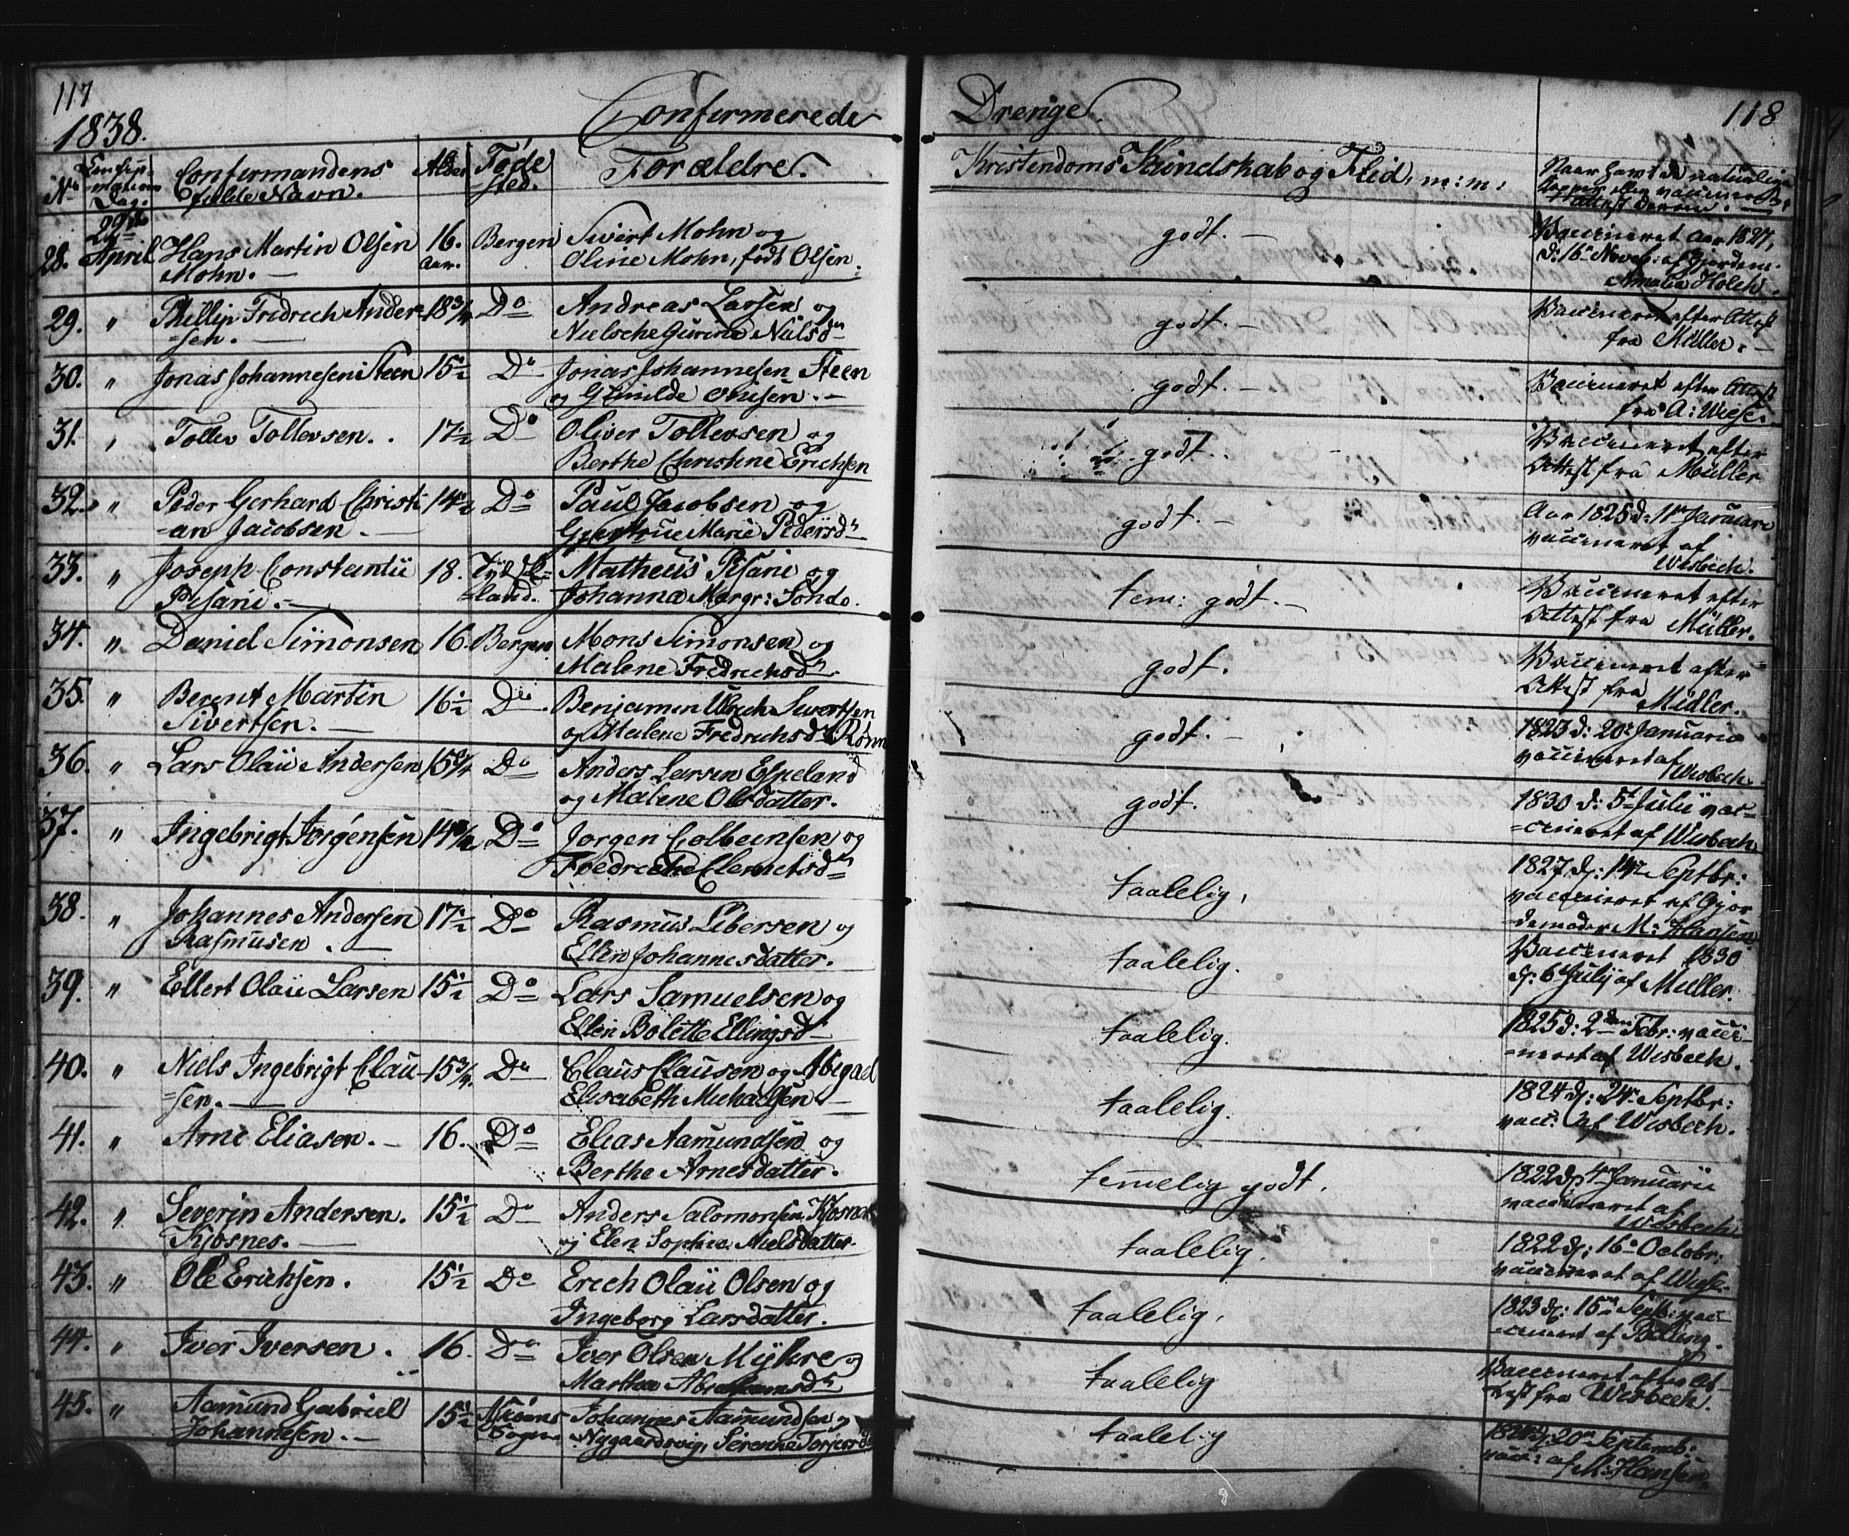 117
1838.
Confirmerede
Drenge.
118
No
Confir-
-mations
Dag.
Confirmandens
fulde Navn.
Alder
Føde
sted.
Forældre.
Kristendoms Kundskab og Flid, m: m:
Naar havt de naturlige
Kopper eller vaccineret,
Attest derom. —
28. 29de April Hans Martin Olsen 16. Bergen Sivert Mohn og
Mohn. — Aar. Oline Mohn, født Olsen.
godt. —
Vaccineret Aar 1827,
d: 16de Novbr: af Gjordem.
Amalia Holch.
29. " Phillip Fredrich Ander- 18 3/4 Do Andreas Larsen og
-sen. — Nielsche Gurine Nielsdn
godt. —
Vaccineret efter Attest
fra Müller. —
30. " Jonas Johannesen Steen 15 1/2 Do Jonas Johannesen Steen
og Gunilde Onsen. —
godt. —
Vaccineret efter Attest
fra A: Wiese.
31. " Tollev Tollevsen. 17 1/2 Do Oliver Tollevsen og
Berthe Christine Erichsen
godt.
Vaccineret efter
Attest fra Müller
32. " Peder Gerhard Christi- 14 1/2 Do Paul Jacobsen og
-an Jacobsen. — Gjertrue Marie Pedersdn
godt. —
Aar 1825 d: 11te Januari
vaccineret af
Wisbech.
33. " Joseph Constantii 18. Tydsk-
Pisarie. — land. Matheus Pisarie og
Johanna Margr: Sondo.
tem: godt. —
Vaccineret efter
Attest fra Müller.
34. " Daniel Simonsen 16. Bergen Mons Simonsen og
Malene Fredrichsdn
godt.
Vaccineret efter
Attest fra Müller.
35. " Berent Martin 16 1/2 Do Benjamin Ulrich Sivertsen
Sivertsen. — og Malene Fredrichsdn Rønn
godt. —
1823 d: 20de Januarii
vaccineret af
Wisbech.
36. " Lars Olaii Andersen 15 3/4 Do Anders Larsen Espeland
og Malene Olsdatter.
godt.
1830 d: 5te Julii vac-
-cineret af Wisbech.
37. " Ingebrigt Jørgensen 14 1/2 Do Jorgen Colbeensen og
Fredreche Clemetsdn
taalelig,
1827 d: 14de Septbr:
vaccineret af Gjor
demoder M: Hansen
38. " Johannes Andersen 17 1/2 Do Rasmus Libersen og
Rasmusen. — Ellen Johannesdatter.
taalelig.
Vaccineret 1830
d. 6te Julij af Müller.
39. " Ellert Olaii Larsen 15 1/2 Do Lars Samuelsen og
Ellen Bolette Ellingsd
taalelig.
1825 d: 2den Febr: vacci-
-neret af Wisbech.
40. " Niels Ingebrigt Clau- 15 3/4 Do Claus Clausen og Abigael
-sen. — Elisabeth Michaelsen. —
taalelig.
1824 d: 24de Septbr:
vacc: af Wisbech.
41. " Arne Eliasen. — 16. Do Elias Aamundsen og
Berthe Arnesdatter.
temmelig godt.
1822 d: 4de Januarii
vaccineret af
Wisbech
42. " Severin Andersen. 15 1/2 Do Anders Salomonsen Kjosnes
Kjosnes. — og Elen Sophia Nielsdatter
taalelig.
1822 d: 16de Octobr:
vaccineret af Wiese.
43. " Ole Erichsen. 15 1/2 Do Erich Olaii Olsen og
Ingeborg Larsdatter.
taalelig,
1823 d: 15de Septr: vac-
-cineret af Billing.
44. " Iver Iversen. 16. Do Iver Olsen Mykre og
Martha Abrahamsdn
taalelig
Vaccineret efter At-
test fra Wisbech.
45. " Aamund Gabriel 15 1/2 Johannes Aamundsen og
Johannesen. — Sogn Nygaardsvig, Serenne
taalelig
20de Septemb:
vacc: af M: Hansen.